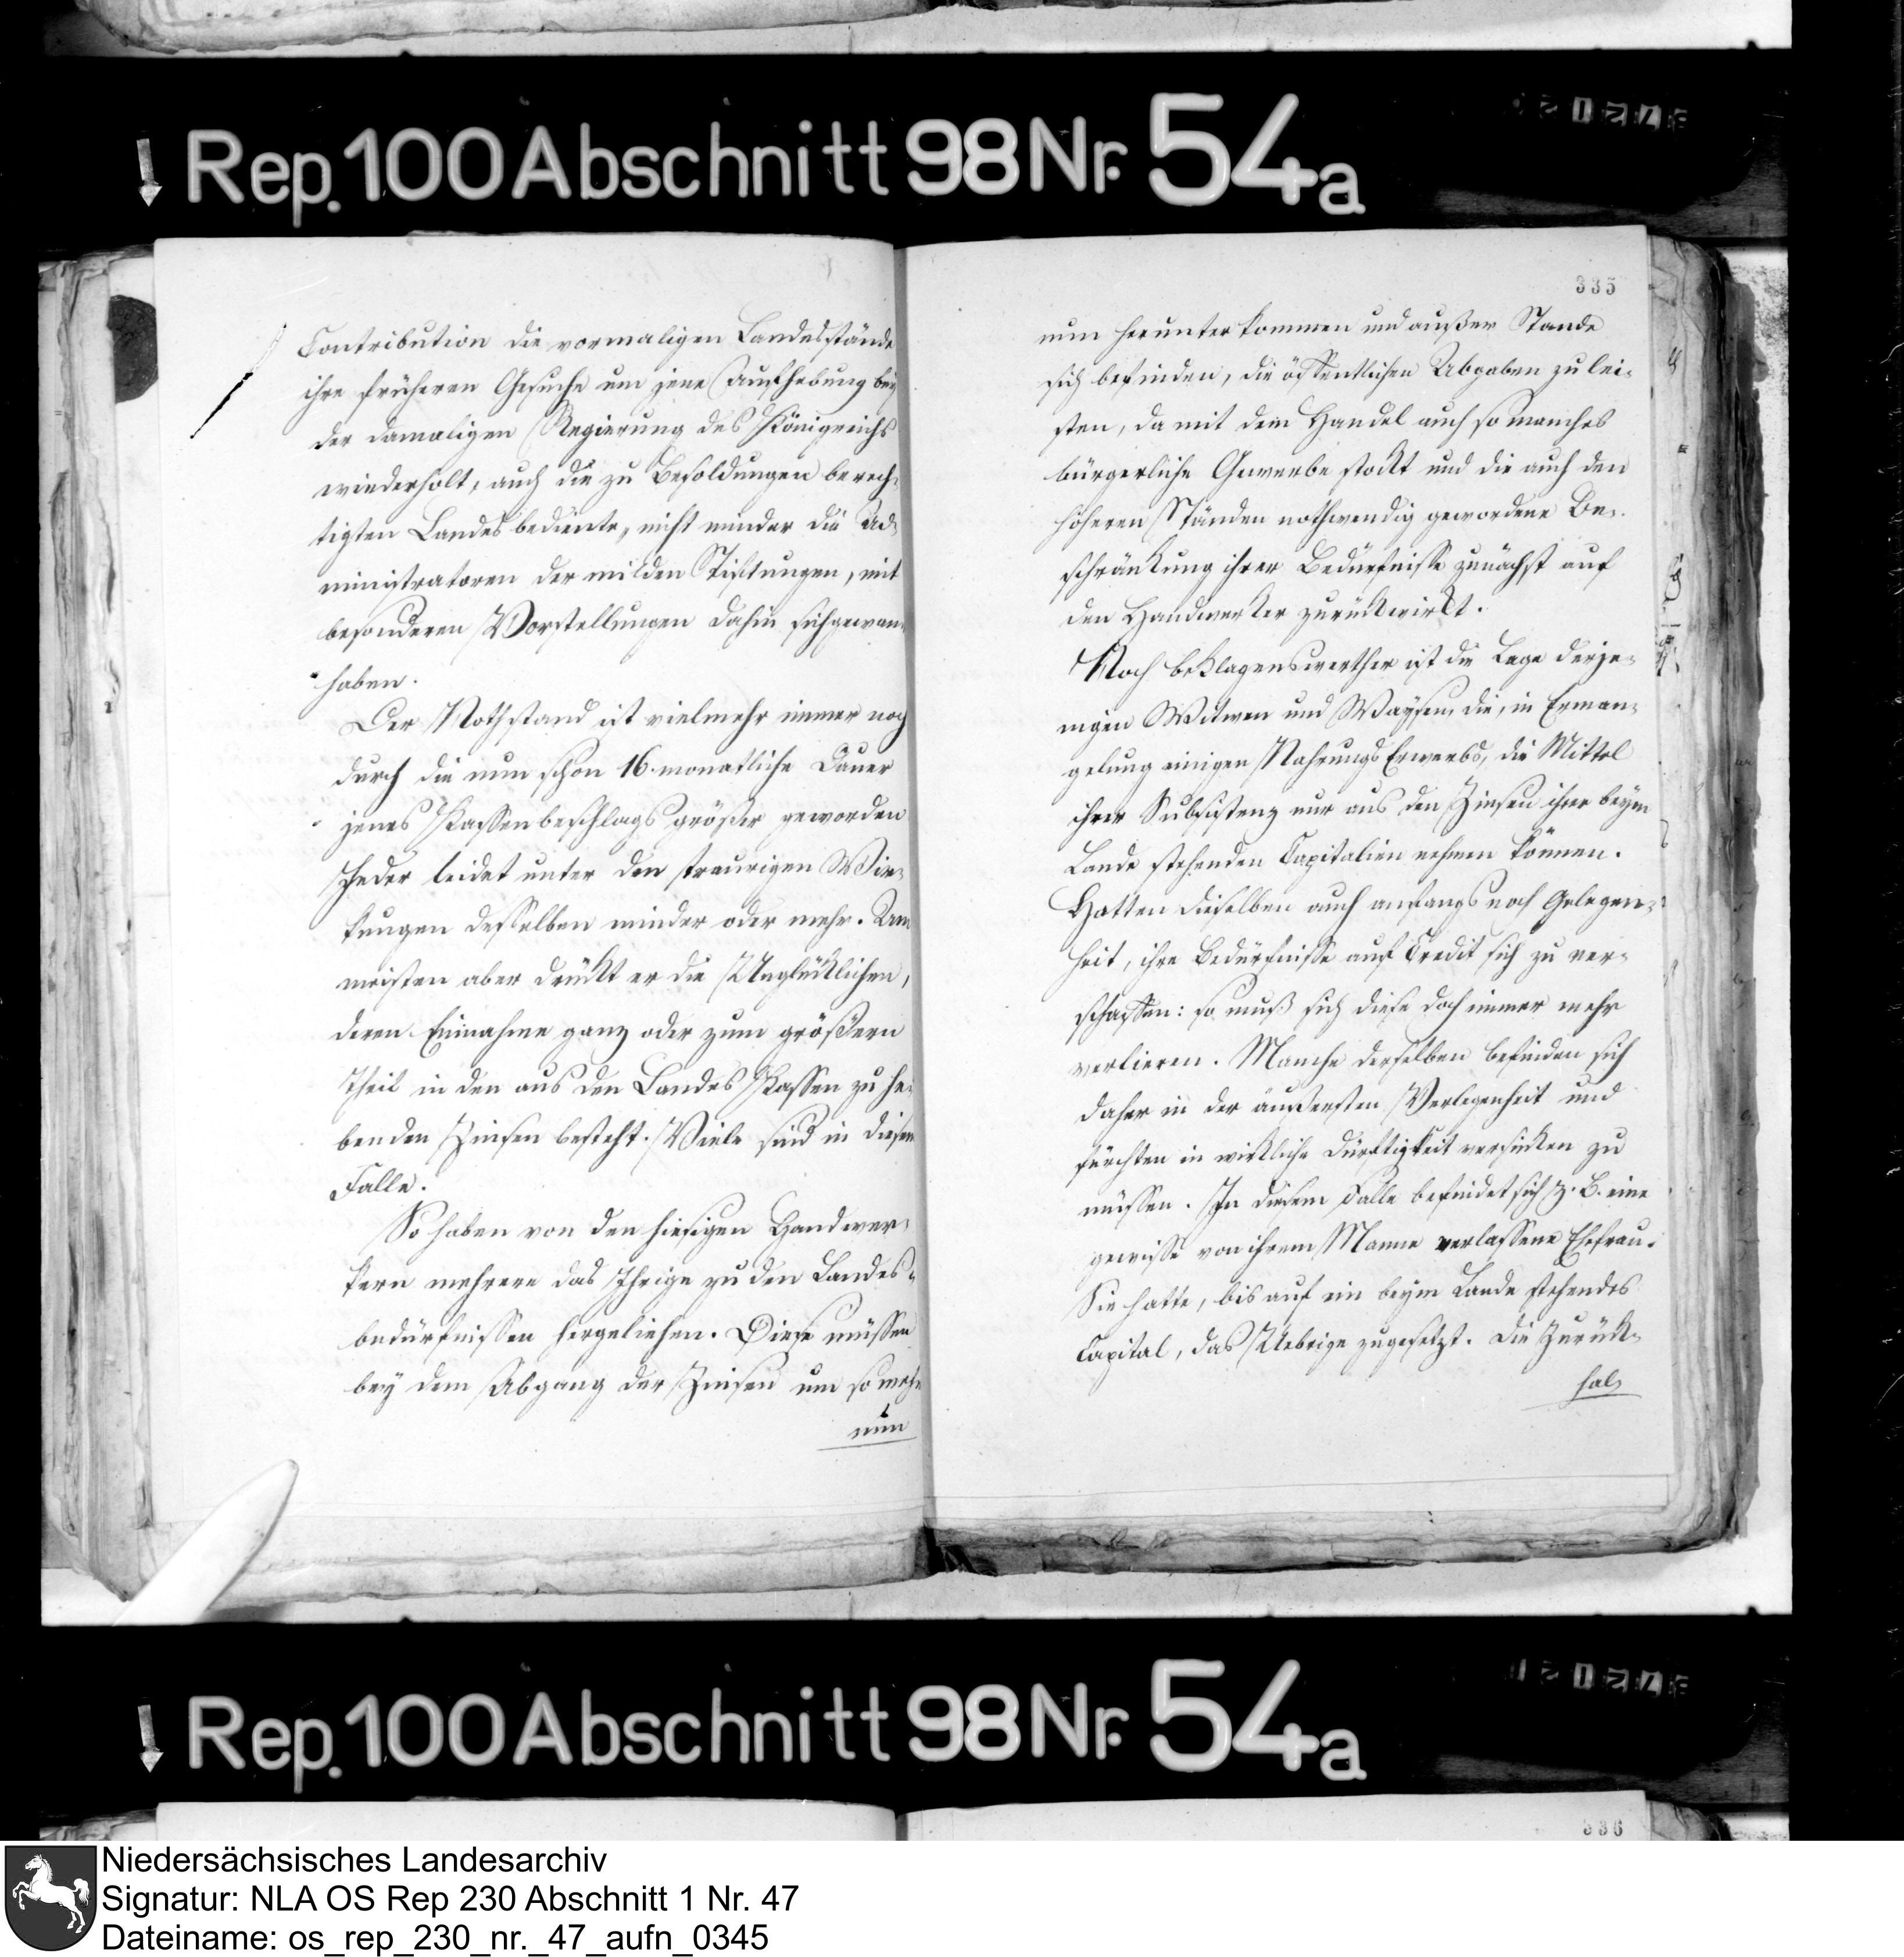 Rep. 100 Abschnitt 98 Nr. 54a
Contribution die vormaligen Landesstände
ihre früheren Gesuche um jene Aufhebung bey
der damaligen Regierung des Königreichs
wiederholt, auch die zu Besoldungen berech-
tigten Landesbediente, nicht minder die Ad-
ministratoren der milden Stiftungen, mit
besonderen Vorstellungen dahin sich gewan-
haben.
Der Nothstand ist vielmehr immer noch
durch die nun schon 16 monatliche Dauer
jenes Kassenbeschlags größer geworden
Jeder leidet unter den traurigen Wir-
kungen desselben minder oder mehr. Am
meisten aber drückt er die Unglücklichen,
deren Einnahme ganz oder zum größern
Theil in den aus den Landes Kassen zu he-
benden Zinsen besteht. Viele sind in diesem
Falle.
So haben von den hiesigen Handwer-
kern mehrere das Ihrige zu den Landes-
bedürfnissen hergeliehen. Diese müssen
bey dem Abgang der Zinsen um so mehr
nun
335
nun herunter kommen und außer Stande
sich befinden, die öffentlichen Abgaben zu lei-
sten, da mit dem Handel auch so manches
bürgerliche Gewerbe stockt und die auch den
höheren Ständen nothwendig gewordene Be-
schränkung ihrer Bedürfnisse zunächst auf
den Handwerker zurückwirkt.
Noch beklagenswerther ist die Lage derje-
nigen Witwen und Waysen, die, in Erman-
gelung einigen Nahrungs Erwerbs, die Mittel
ihrer Subsistenz nur aus den Zinsen ihrer beym
Lande stehenden Capitalien nehmen können.
Hatten dieselben auch anfangs noch Gelegen-
heit, ihre Bedürfnisse auf Credit sich zu ver-
schaffen: so muß sich diese doch immer mehr
verlieren. Manche derselben befinden sich
daher in der äußersten Verlegenheit und
fürchten in wirkliche Dürftigkeit versinken zu
müssen. In diesem Falle befindet sich z. B. eine
gewisse von ihrem Manne verlassene Ehefrau.
Sie hatte, bis auf ein beym Lande stehendes
Capital, das Uebrige zugesetzt. Die Zurück-
hal-
Rep. 100 Abschnitt 98 Nr. 54a
336
Niedersächsisches Landesarchiv
Signatur: NLA OS Rep 230 Abschnitt 1 Nr. 47
Dateiname: os_rep_230_nr._47_aufn_0345